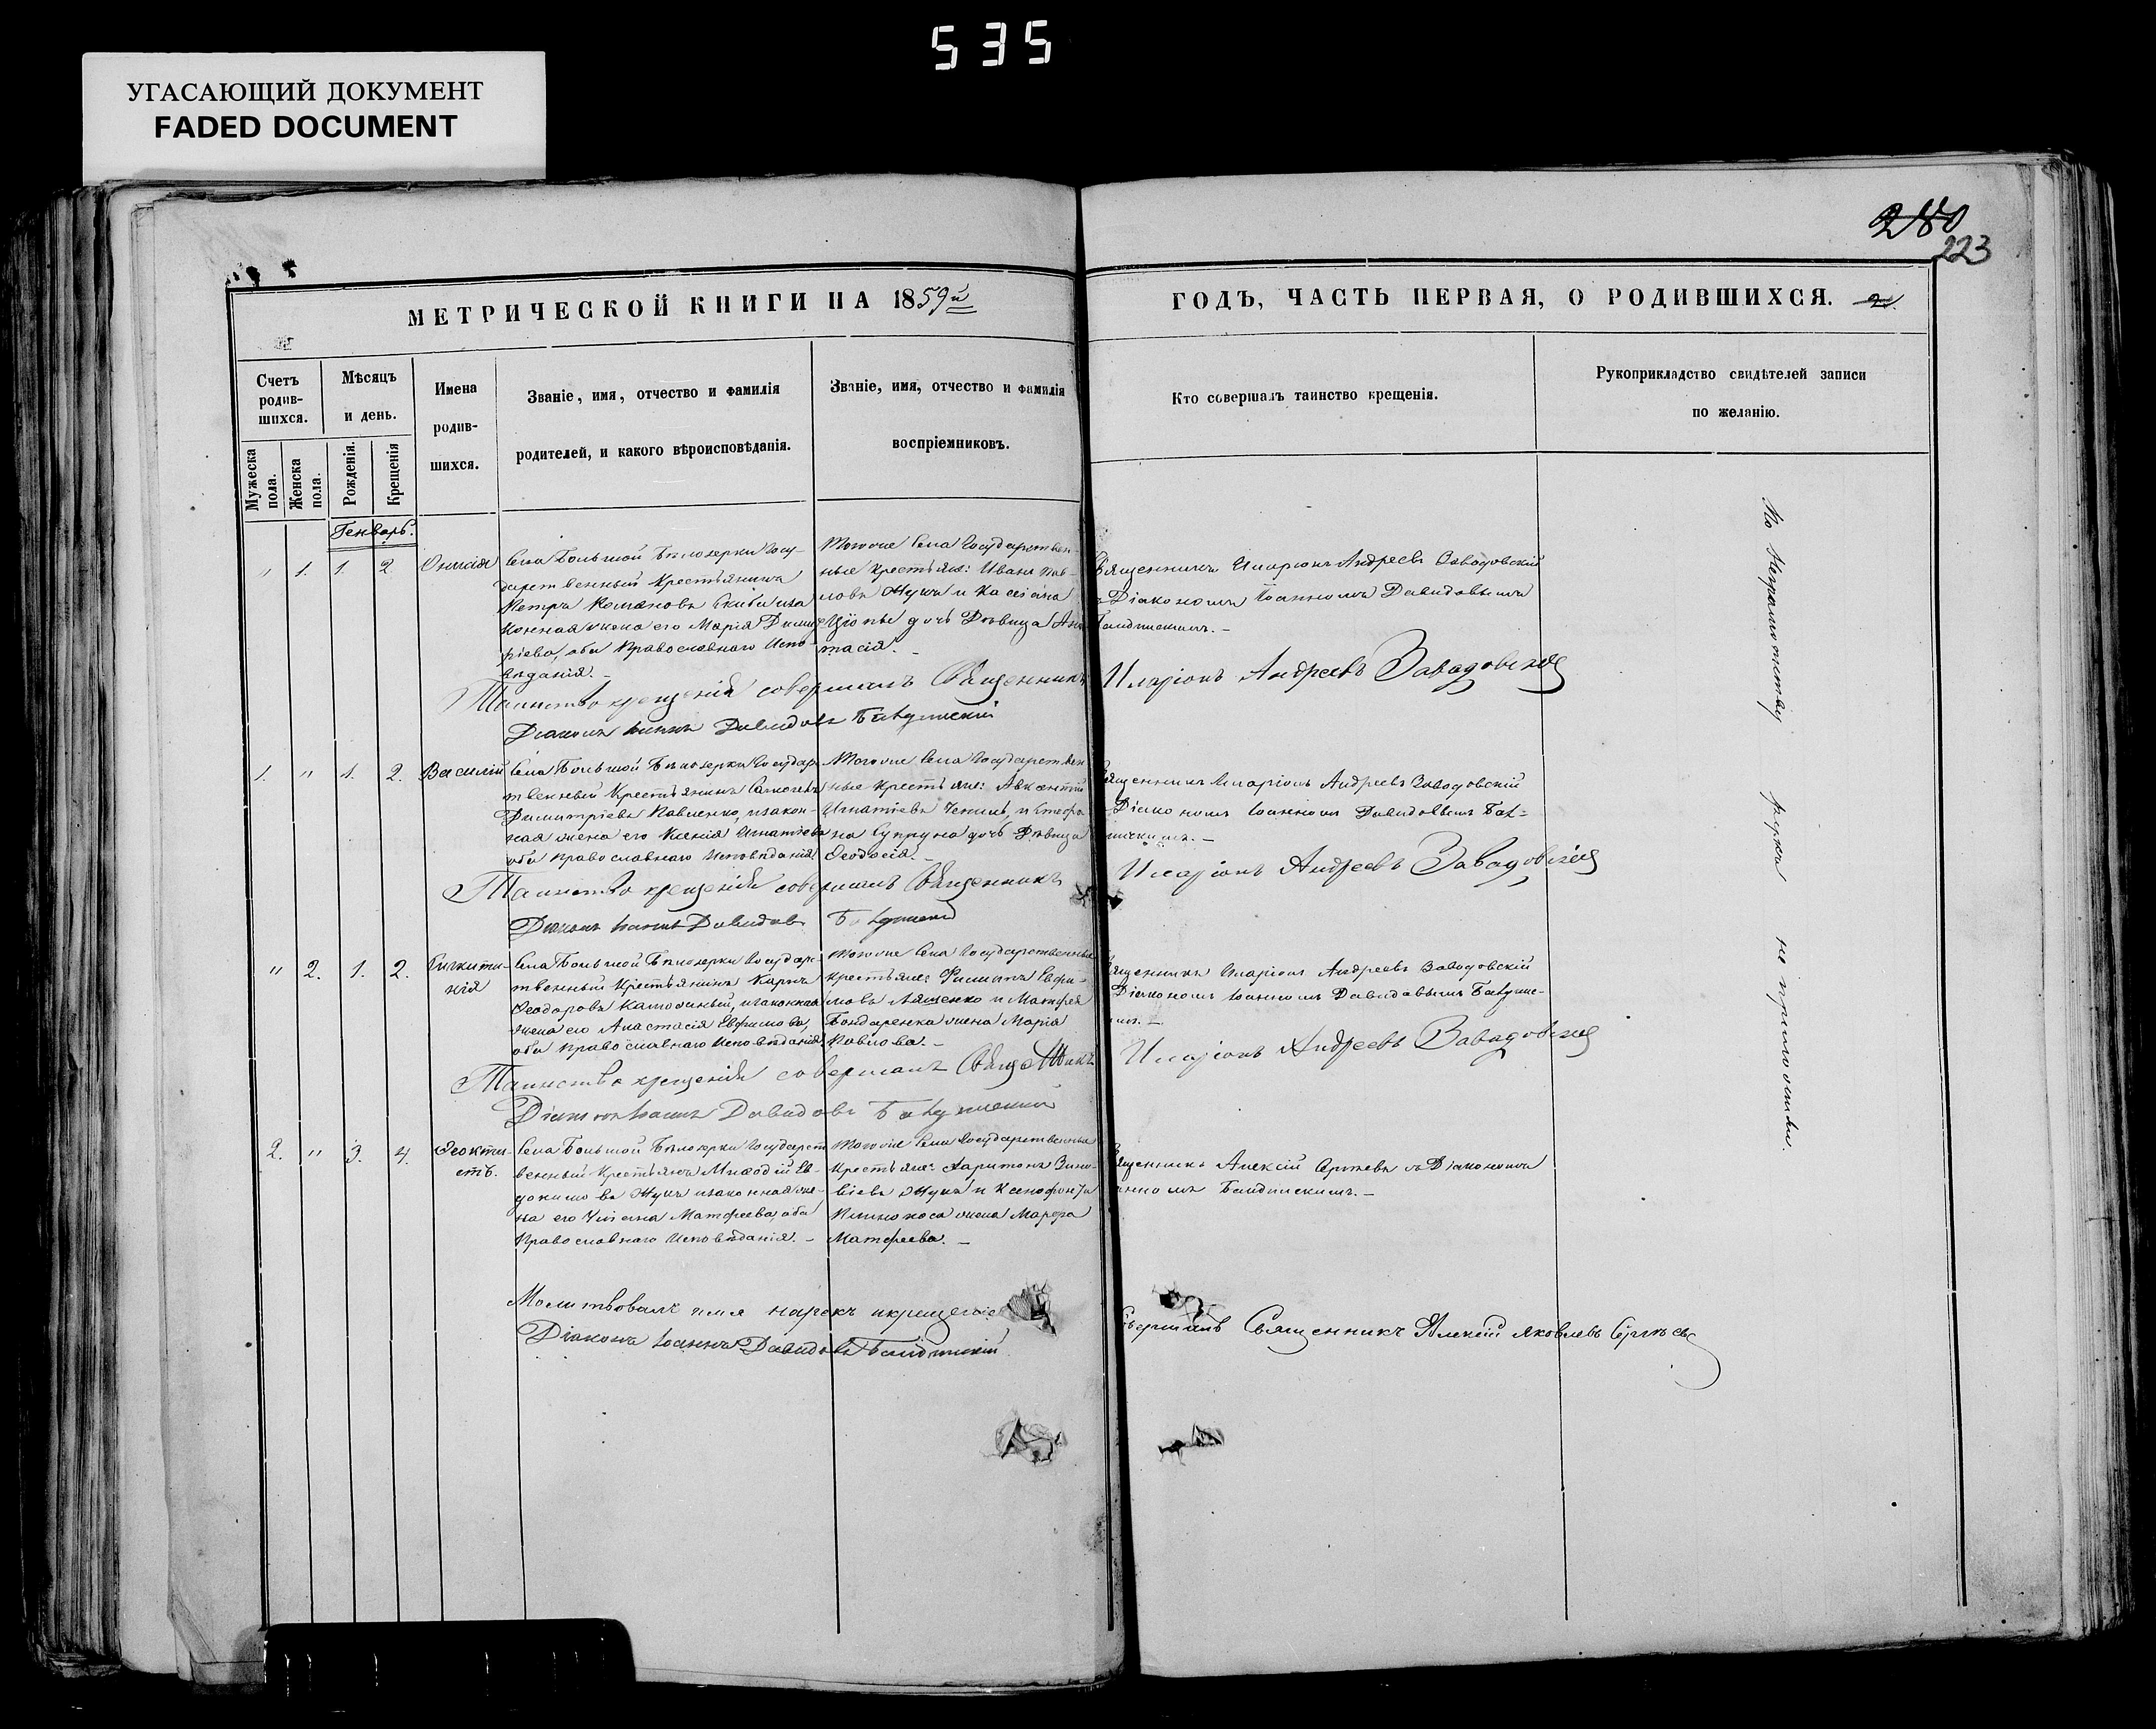 535
УГАСАЮЩИЙ ДОКУМЕНТ
FADED DOCUMENT
280
223
МЕТРИЧЕСКОЙ КНИГИ НА 1859й
ГОДЪ, ЧАСТЬ ПЕРВАЯ, О РОДИВШИХСЯ. 2.
Счетъ родив-
шихся.
Мужеска пола.
Женска пола.
Мѣсяцъ
и день.
Рожденія.
Крещенія
Имена
родив-
шихся.
Званіе, имя, отчество и фамилія
родителей, и какого вѣроисповѣданія.
Званіе, имя, отчество и фамилія
воспріемниковъ.
Кто совершалъ таинство крещенія.
Рукоприкладство свидѣтелей записи
по желанію.
Генварь.
" 1. 1. 2
Села Большой Бѣлозерки Госу-
дарственный Крестьянинъ
Петръ Скиба
жена его Марія Димит-
ріева, оба Православнаго Испо-
вѣданія. -
Тогоже Села Государствен-
ные Крестьяне: Иванъ Пав-
ловъ Жукъ и
дочь Дѣвица Ана-
тасія. -
Священникъ Иларіонъ Андреевъ Заводовскій
съ Діакономъ Іоанномъ Давидовымъ
Таинство крещенія совершалъ Священникъ
Иларіонъ Андреевъ Завадовскій
Діаконъ Іоаннъ Давидовъ
1. " 1. 2. Василій
Села Большой Бѣлозерки Государ-
твенный Крестьянинъ
Димитріевъ Павленко, изакон-
ная жена его Ксенія Игнатіева
оба православнаго Исповѣданія.
Тогоже Села Государствен
ные Крестьяне: Авксентій
Игнатіевъ и Стефа-
на Супруна дочь Дѣвица
Ѳеодосія. -
Священникъ Иларіонъ Андреевъ Заводовскій
Діакономъ Іоанномъ Давидовымъ
Таинство крещенія совершалъ Священникъ
Иларіонъ Андреевъ Завадовскій
Діаконъ Іоаннъ Давидовъ
" 2. 1. 2.
Села Большой Бѣлозерки Государ-
твенный Крестьянинъ Карпъ
Ѳеодоровъ изаконная
жена его Анастасія Евфимова,
оба православнаго Исповѣданія.
Тогоже Села Государственные
крестьяне: Филиппъ Евфи-
мовъ Ляшенко и Матфея
Бондаренка жена Марія
Павлова. -
Священникъ Иларіонъ Андреевъ Заводовскій
Діакономъ Іоанномъ Давидовымъ
Таинство крещенія совершалъ Священникъ
Иларіонъ Андреевъ Завадовскій
Діаконъ Іоаннъ Давидовъ
2. " 3. 4. Ѳеокти-
стъ.
Села Большой Бѣлозерки Государст
венный Крестьянъ Меѳодій Ев-
докимовъ Жукъ изаконная же-
на его Матфеева, оба
Православнаго Исповѣданія. -
Тогоже Села Государственные
Крестьяне: Харитонъ Зино-
віевъ Жукъ и Ксенофонта
жена Марфа
Матфеева. -
Священникъ Алексій съ Діакономъ
Молитвовалъ имя нарекъ икрещеніе
Совершилъ Священникъ Алексій Яковлевъ
Діаконъ Іоаннъ Давидовъ
По Неграмотству руки не приложили.